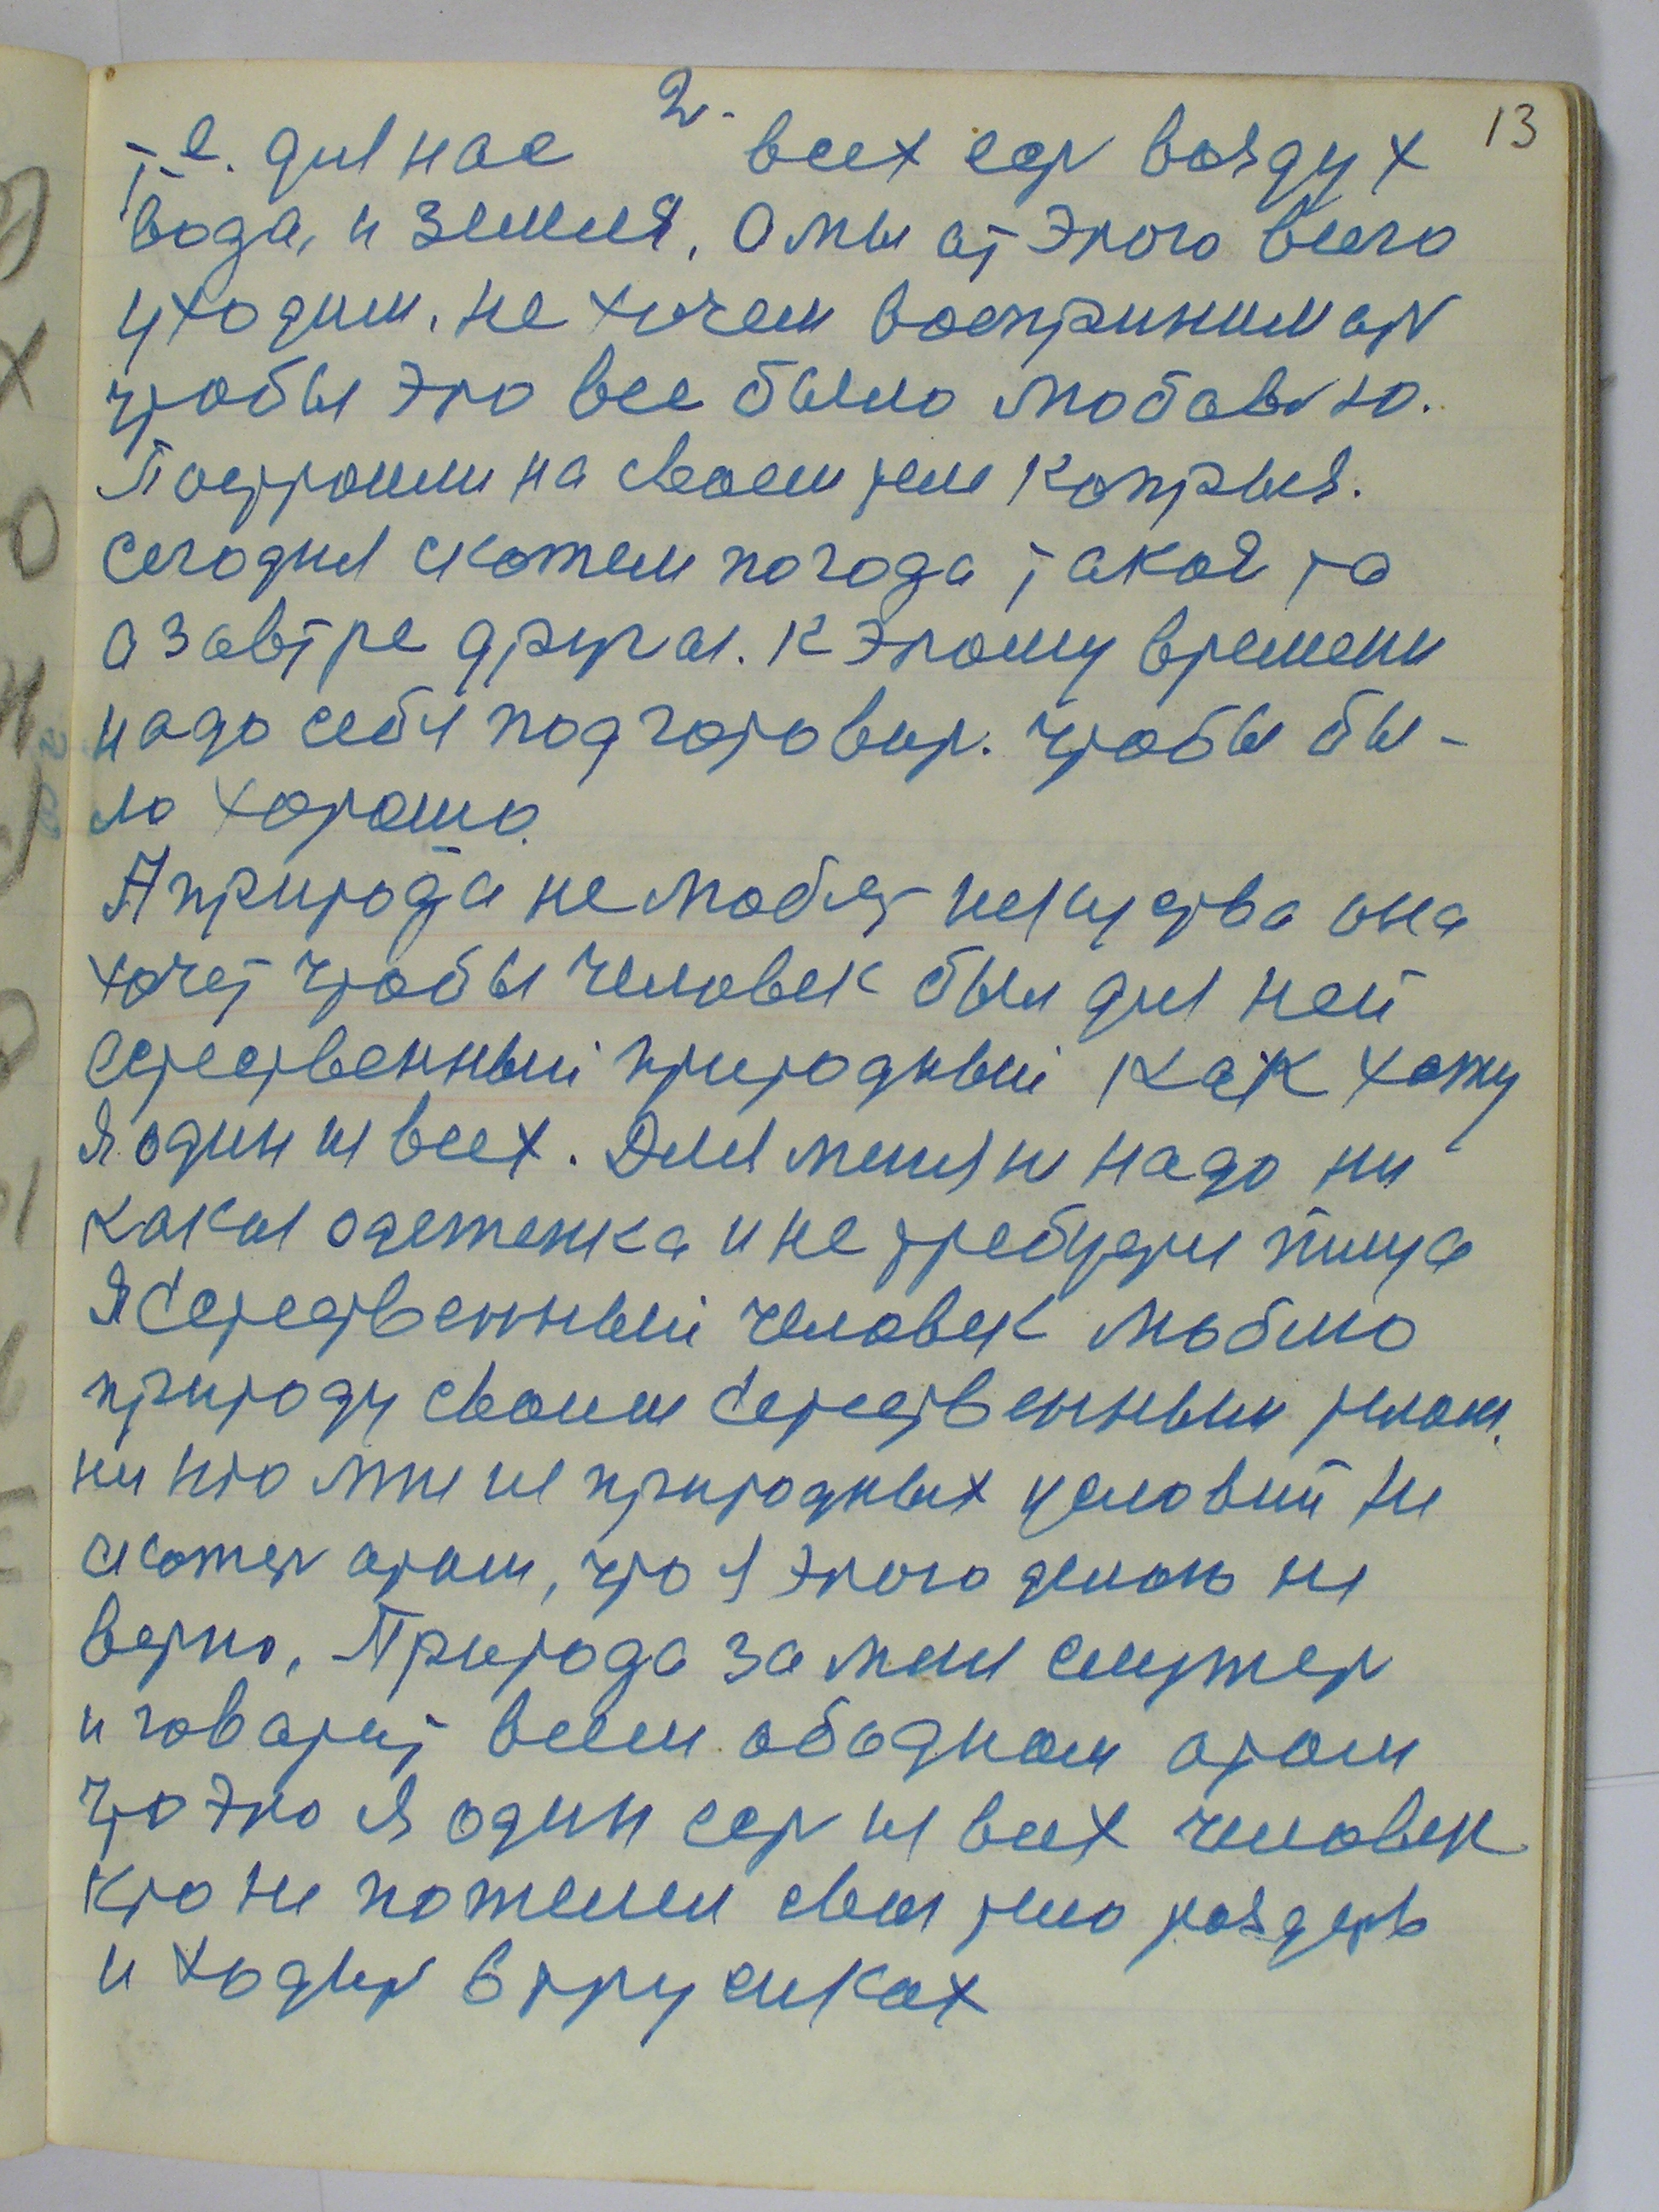 2.
13
т.е. для нас всех есть воздух
вода, и земля. А мы от этого всего
уходим. не хочем воспринимать
чтобы это все было любовью.
Построили на своем теле капрыз.
сегодня скажем погода такая то
а завтре другая. К этому времени
надо себя подготовить. чтобы бы-
ло хорошо.
А природа не любет искуства она
хочет чтобы человек был для ней
естественный природный как хожу
я один из всех. Для меня не надо ни
какая одеженка и не требуется пища
Я естественный человек люблю
природу своим естественным телом.
ни кто мне из природных условий не
скажет этим, что я этого делаю не
верно. Природа за мня слушает
и говарит всем об одном этом
что это я один есть из всех человек
кто не пожелел свое тело раздеть
и ходить в трусиках